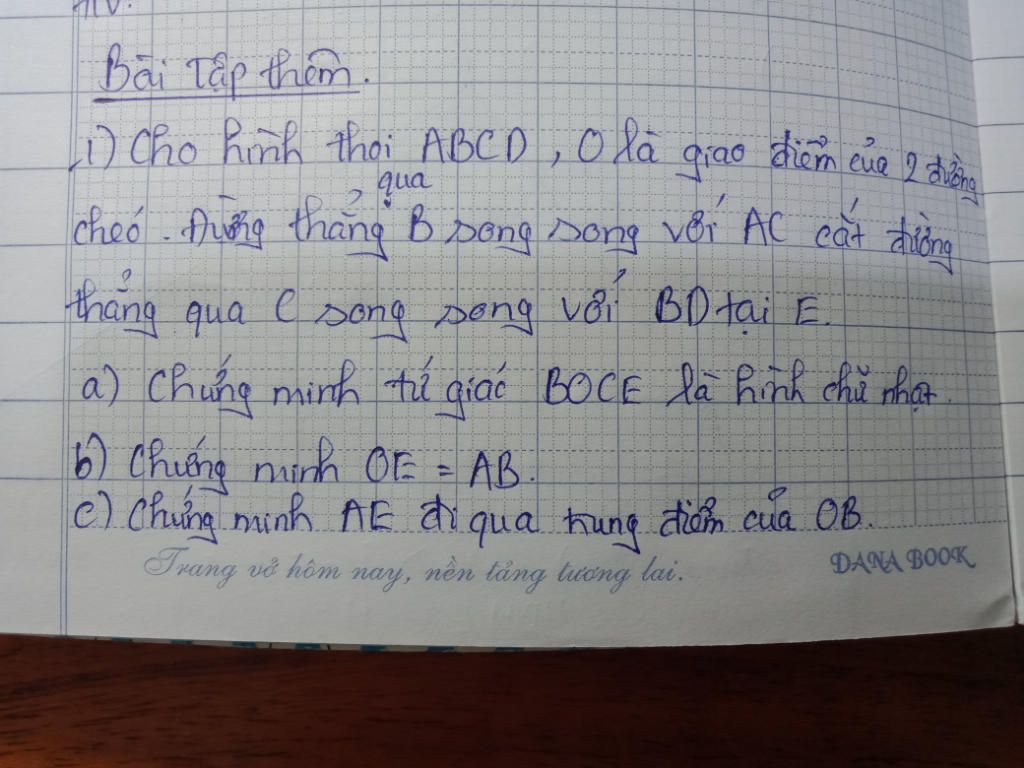 Bài tập thêm.
1) Cho hình thoi ABCD, O là giao điểm của 2 đường
qua
chéo. Đường thẳng B song song với AC cắt đường
thẳng qua C song song với BD tại E.
a) Chứng minh tứ giác BOCE là hình chữ nhật.
b) Chứng minh OE = AB.
c) Chứng minh AE đi qua trung điểm của OB.
Trang vở hôm nay, nền tảng tương lai.
DANA BOOK